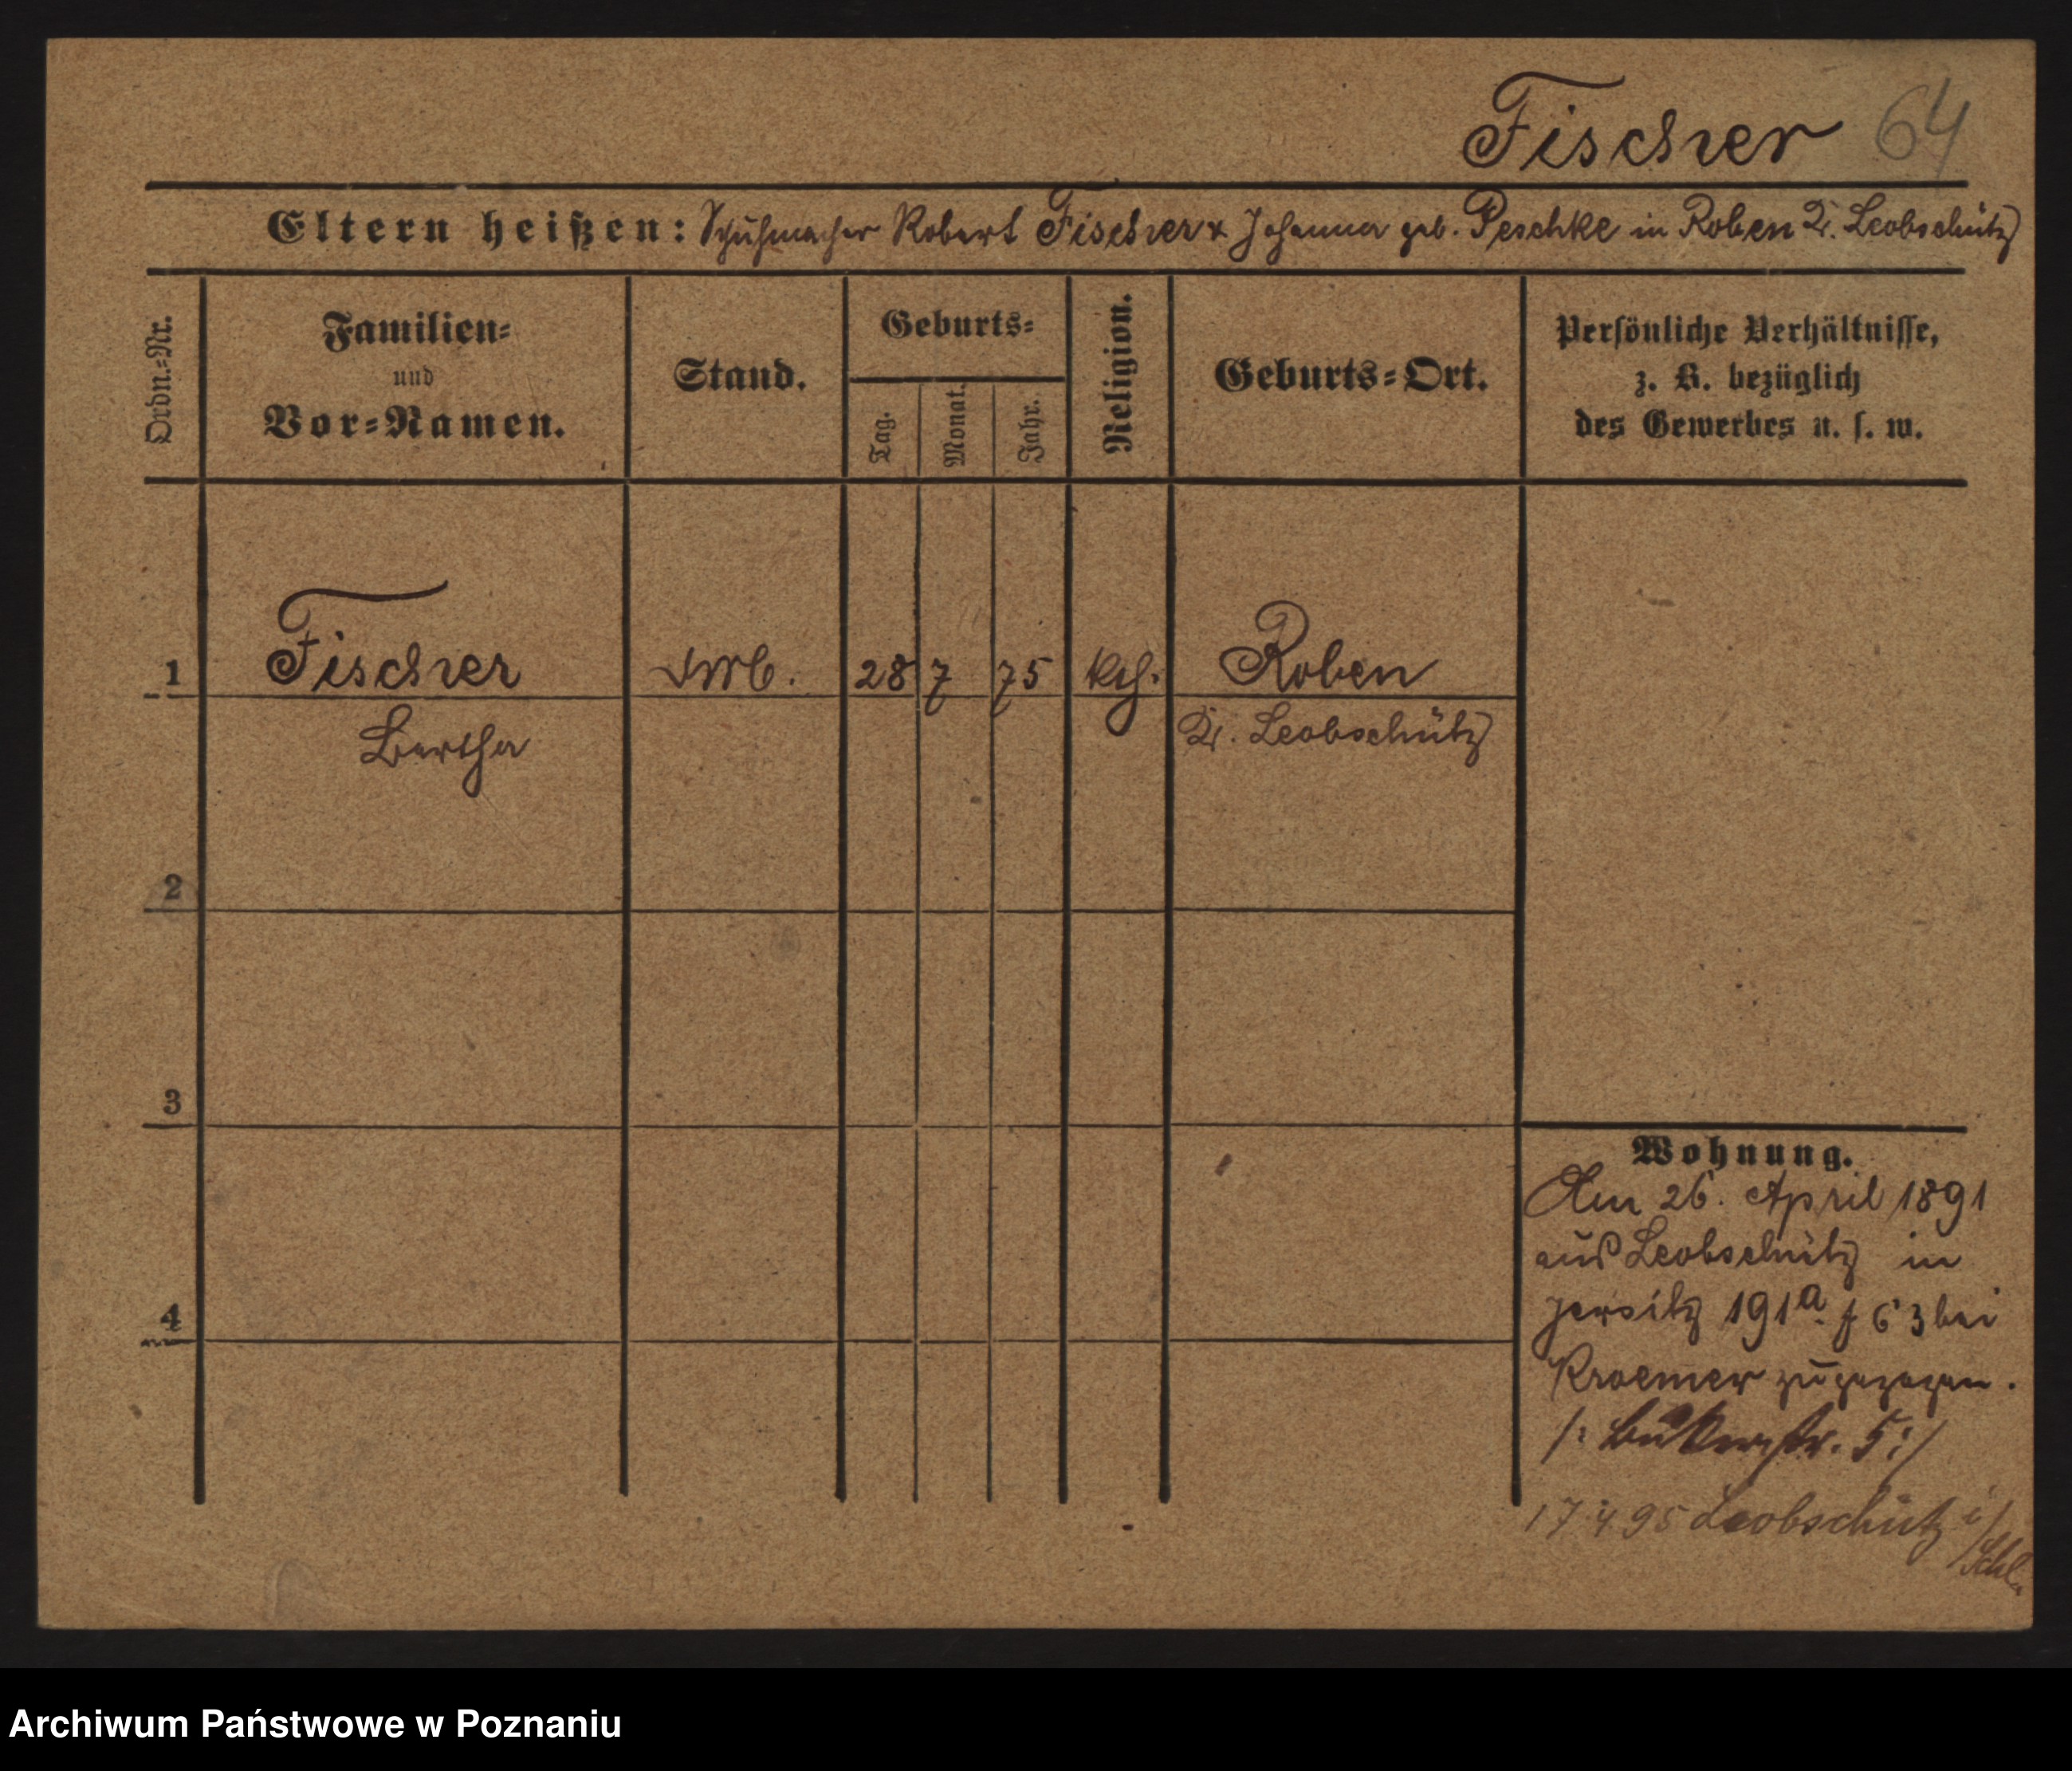 Fischer 64
Eltern heißen: Schuhmacher Robert Fischer & Johanna geb. Peschke in Roben Kr. Leobschütz
Ordn.=Nr.
Familien=
und
Vor=Namen.
Stand.
Geburts=
Tag.
Monat.
Jahr.
Religion.
Geburts=Ort.
Persönliche Verhältnisse,
z. B. bezüglich
des Gewerbes u. s. w.
1 Fischer 28 7 75 kth. Roben
Bertha Kr. Leobschütz
2
3
4
Wohnung.
Am 26. April 1891
aus Leobschütz in
Jersitz 191a. bei
Kraemer zugezogen.
/: Bukerstr. 5 :/
17 4 95 Leobschütz i/
Schl.
Archiwum Państwowe w Poznaniu